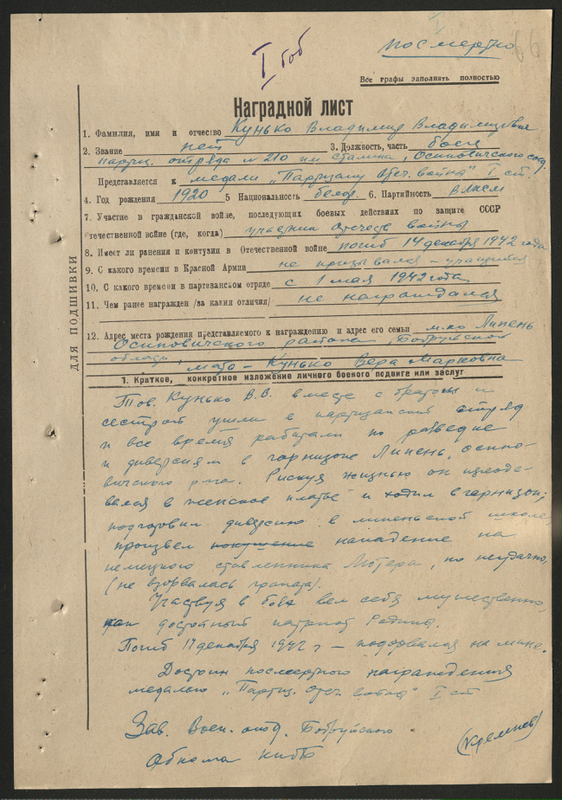 I боб
посмертно
Все графы заполнять полностью
Наградной лист
1. Фамилия, имя и отчество Кунько Владимир Владимирович
2. Звание нет 3. Должность, часть боец
партиз. отряда № 210 им Сталина, Осиповичского соед.
Представляется к медали „Партизану Отеч. война" I ст.
4. Год рождения 1920 5 Национальность белор. 6. Партийность влксм
7. Участие в гражданской войне, последующих боевых действиях по защите СССР
отечественной войне (где, когда) участник отечеств войны
8. Имеет ли ранения и контузии в Отечественной войне погиб 14 декабря 1942 года
9. С какого времени в Красной Армии не призывался – учащийся
10. С какого времени в партизанском отряде с 1 мая 1942 года
11. Чем ранее награжден /за какия отличия/ не награждался
12. Адрес места рождения представляемого к награждению и адрес его семьи м-ко Липень
Осиповичского района, Бобруйской
област, мать – Кунько Вера Марковна
1. Краткое, конкретное изложение личного боевого подвига или заслуг
Тов. Кунько В.В. вместе с братом и
сестрой ушли в партизанский отряд
и все время работали по разведке
и диверсиям в гарнизоне Липень, осипо-
вичского р-на. Рискуя жизнью он переоде-
вался в женское платье и ходил в гарнизон;
подготовил диверсию в липеньской школе,
произвел покушение нападение на
немецкого ставленника, но неудачно,
(не взорвалась граната).
Участвуя в боях вел себя мужественно,
как достойный патриот Родины.
Погиб 14 декабря 1942 г – подорвался на мине.
Достоин посмертного награждения
медалью „Партиз. Отеч. войны" I ст
Зав. Воен. отд. Бобруйского
Обкома КП(б)Б
ДЛЯ ПОДШИВКИ